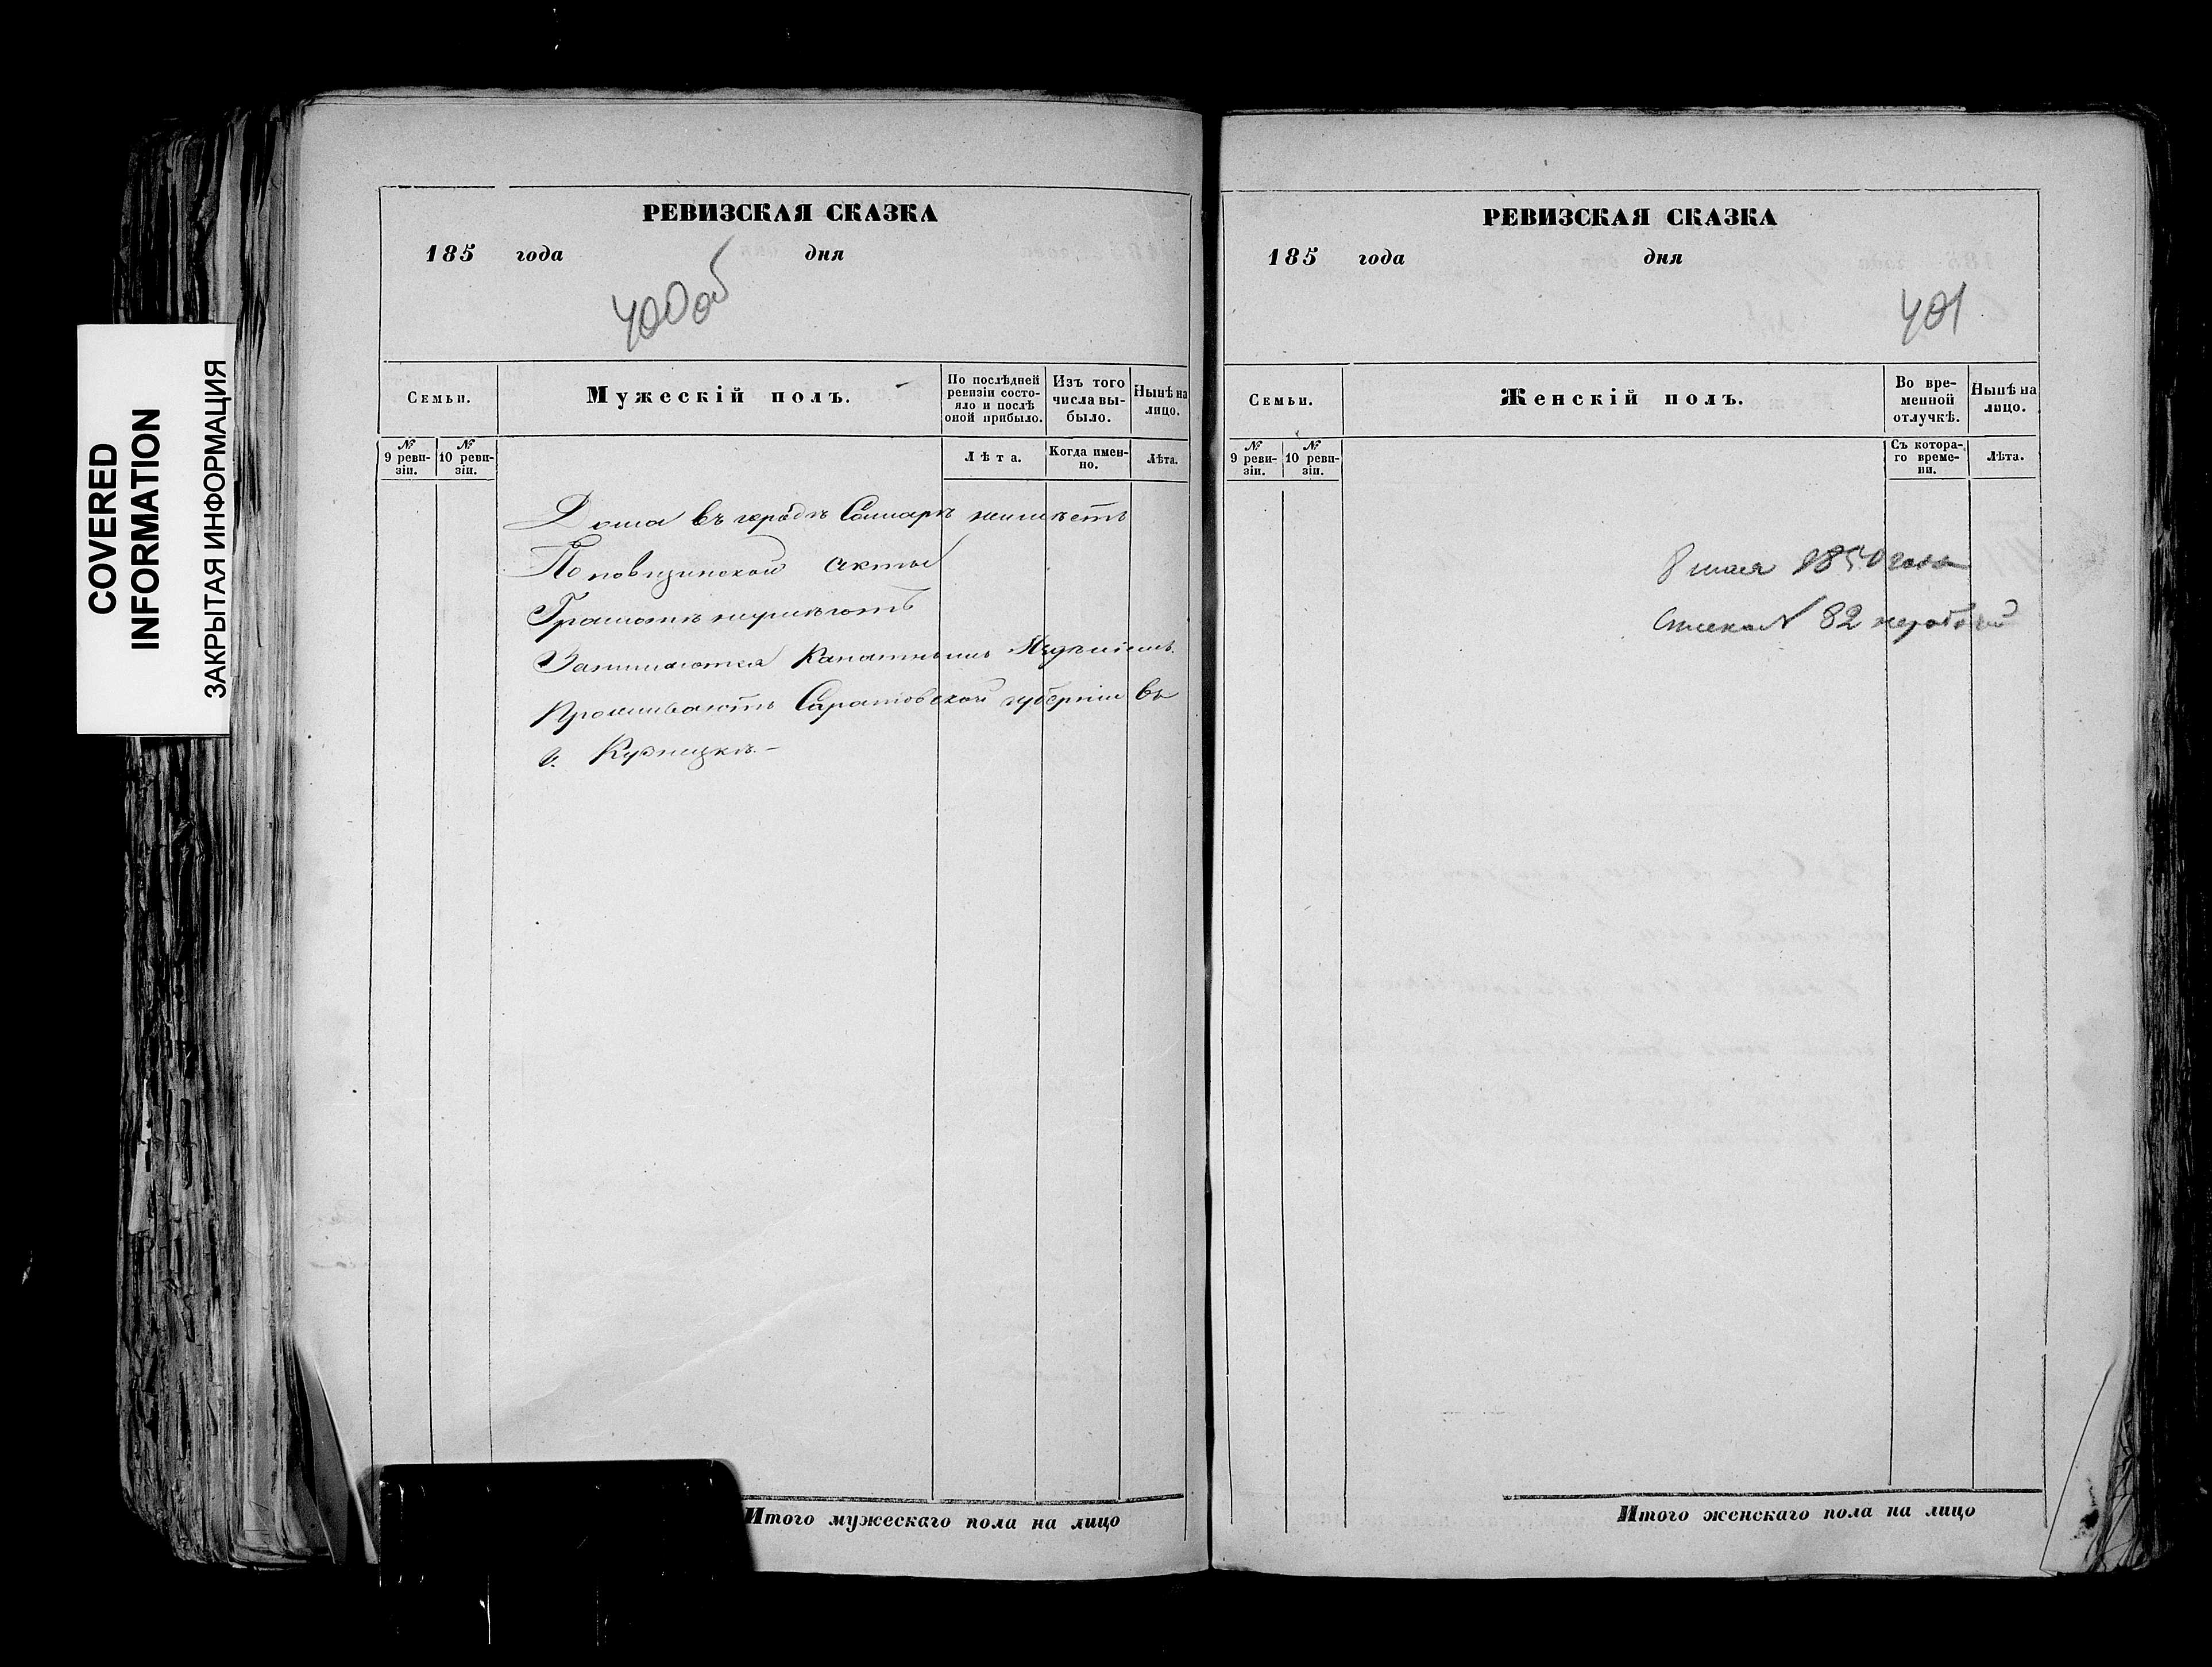 COVERED
INFORMATION
ЗАКРЫТАЯ ИНФОРМАЦИЯ
РЕВИЗСКАЯ СКАЗКА
185 года дня
400об
Семьи.
Мужескій полъ.
По послѣдней
ревизіи состо-
яло и послѣ
оной прибыло.
Изъ того
числа вы-
было.
Нынѣ на
лицо.
№
9 реви-
зіи.
№
10 реви-
зіи.
Лѣта.
Когда имен-
но.
Лѣта.
Дома въ городѣ Самарѣ неимѣетъ
Поповщинской секты
Грамотѣ неумѣютъ
Занимаются Канатнымъ
Проживаютъ Саратовской губерніи въ
г. Кузнецкѣ.-
Итого мужескаго пола на лицо
РЕВИЗСКАЯ СКАЗКА
185 года дня
401
Семьи.
Женскій полъ.
Во вре-
менной
отлучкѣ.
Нынѣ на
лицо.
№
9 реви-
зіи.
№
10 реви-
зіи.
Съ котора-
го време-
ни.
Лѣта.
8 мая года
№ 82
Итого женскаго пола на лицо